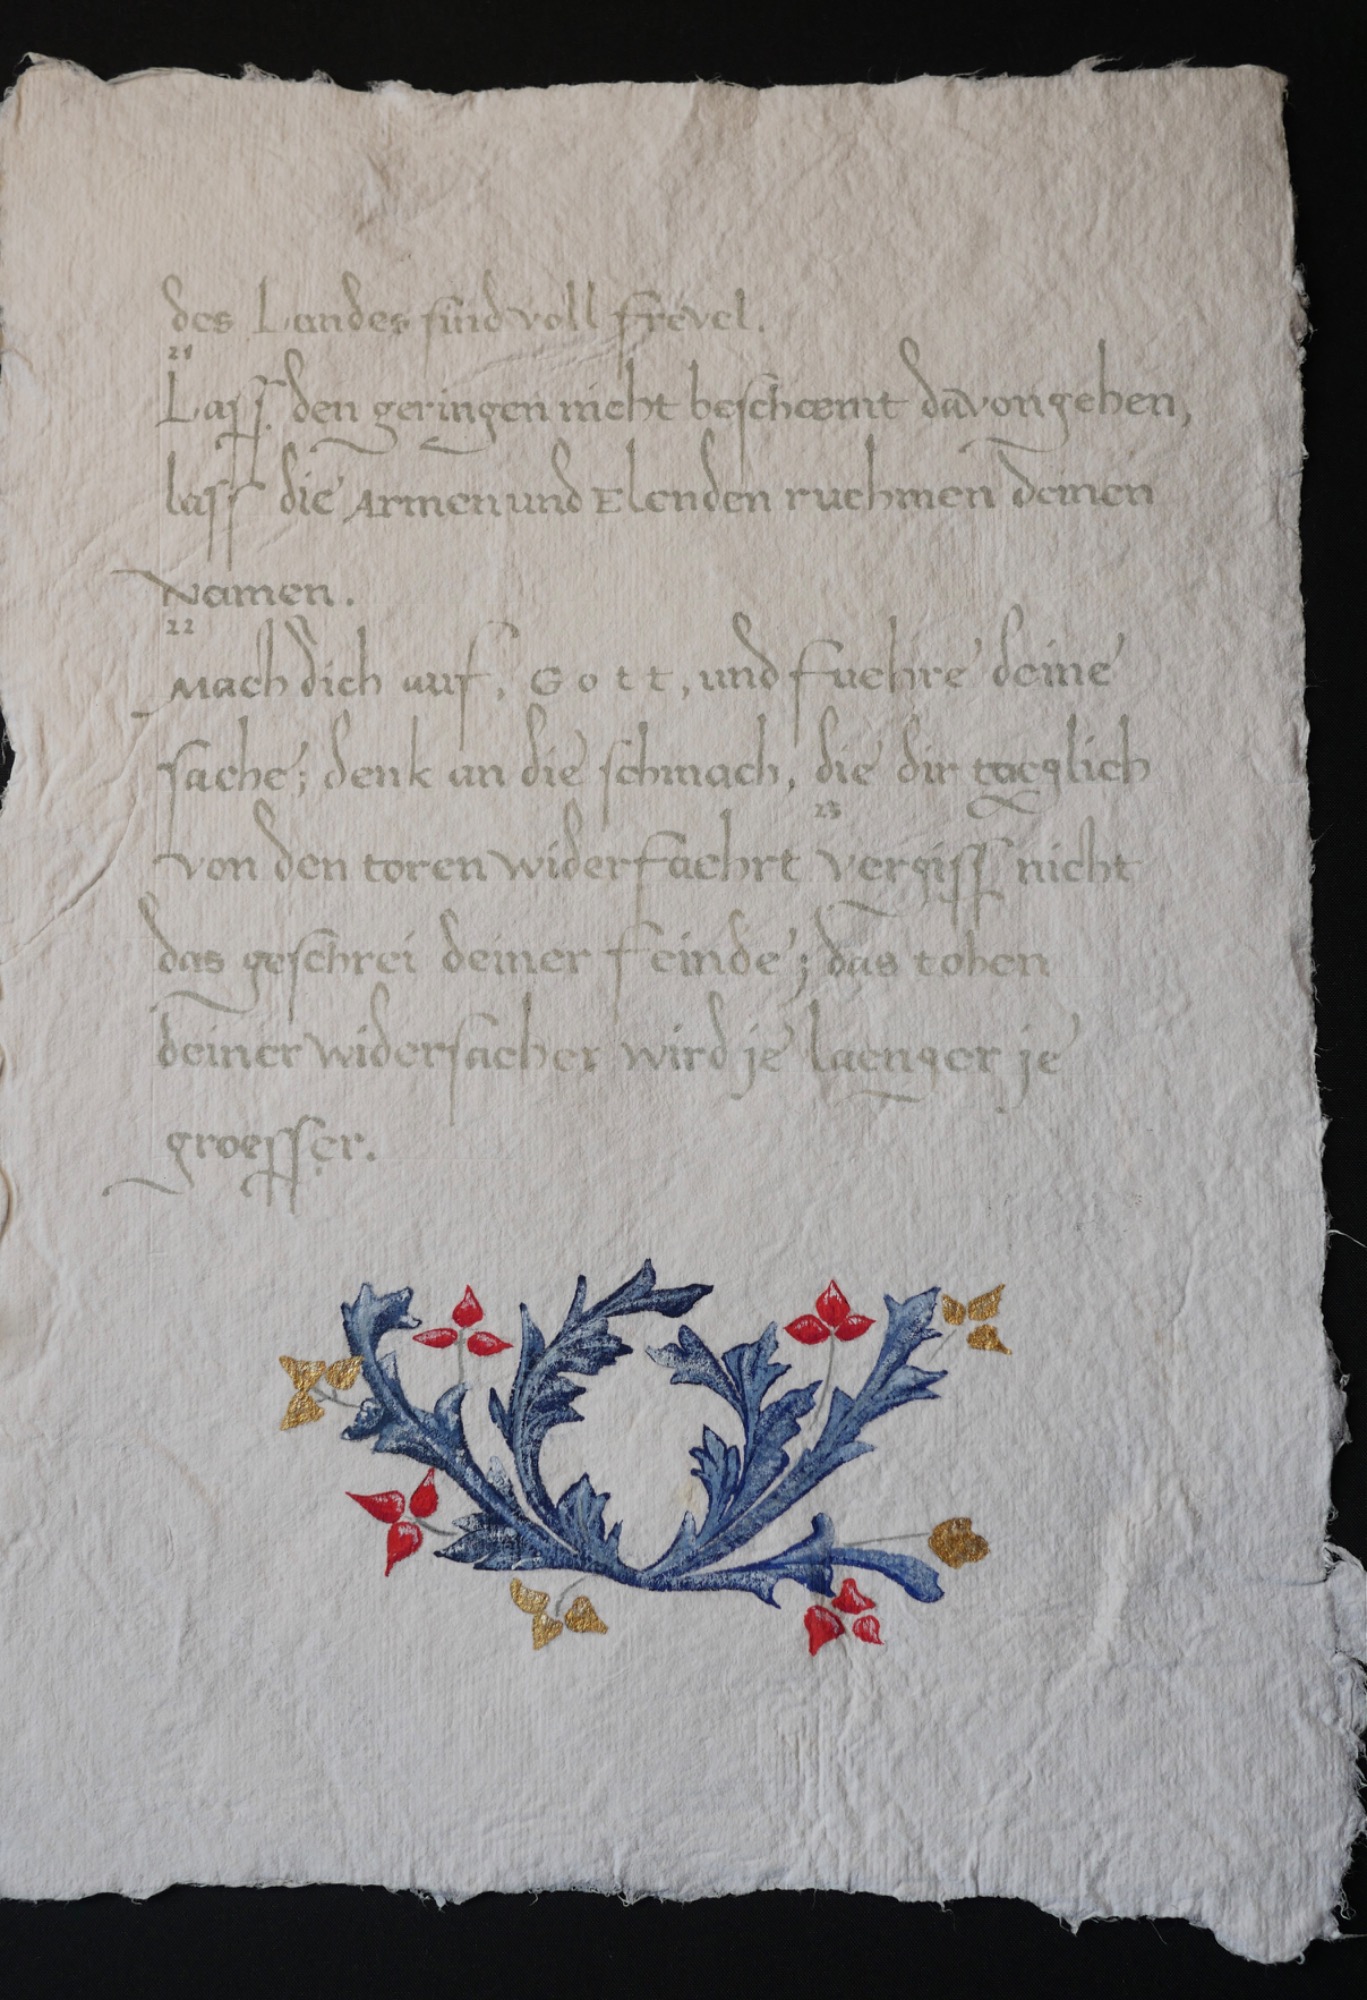 des Landes sind voll Frevel.
21
Lass den geringen nicht beschoemt davongehen,
lass die Armen und Elenden ruehmen deinen
Namen.
22
Mach dich auf, Gott, und fuehre deine
sache; denk an die schmach, die dir taeglich
23
von den toren widerfaehrt vergiss nicht
das geschrei deiner feinde; das toben
deiner widersacher wird je laenger je
groesser.